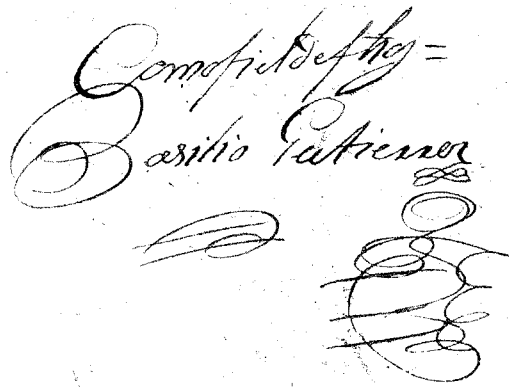 Comofiel de fhos =
Basilio Gutierrez